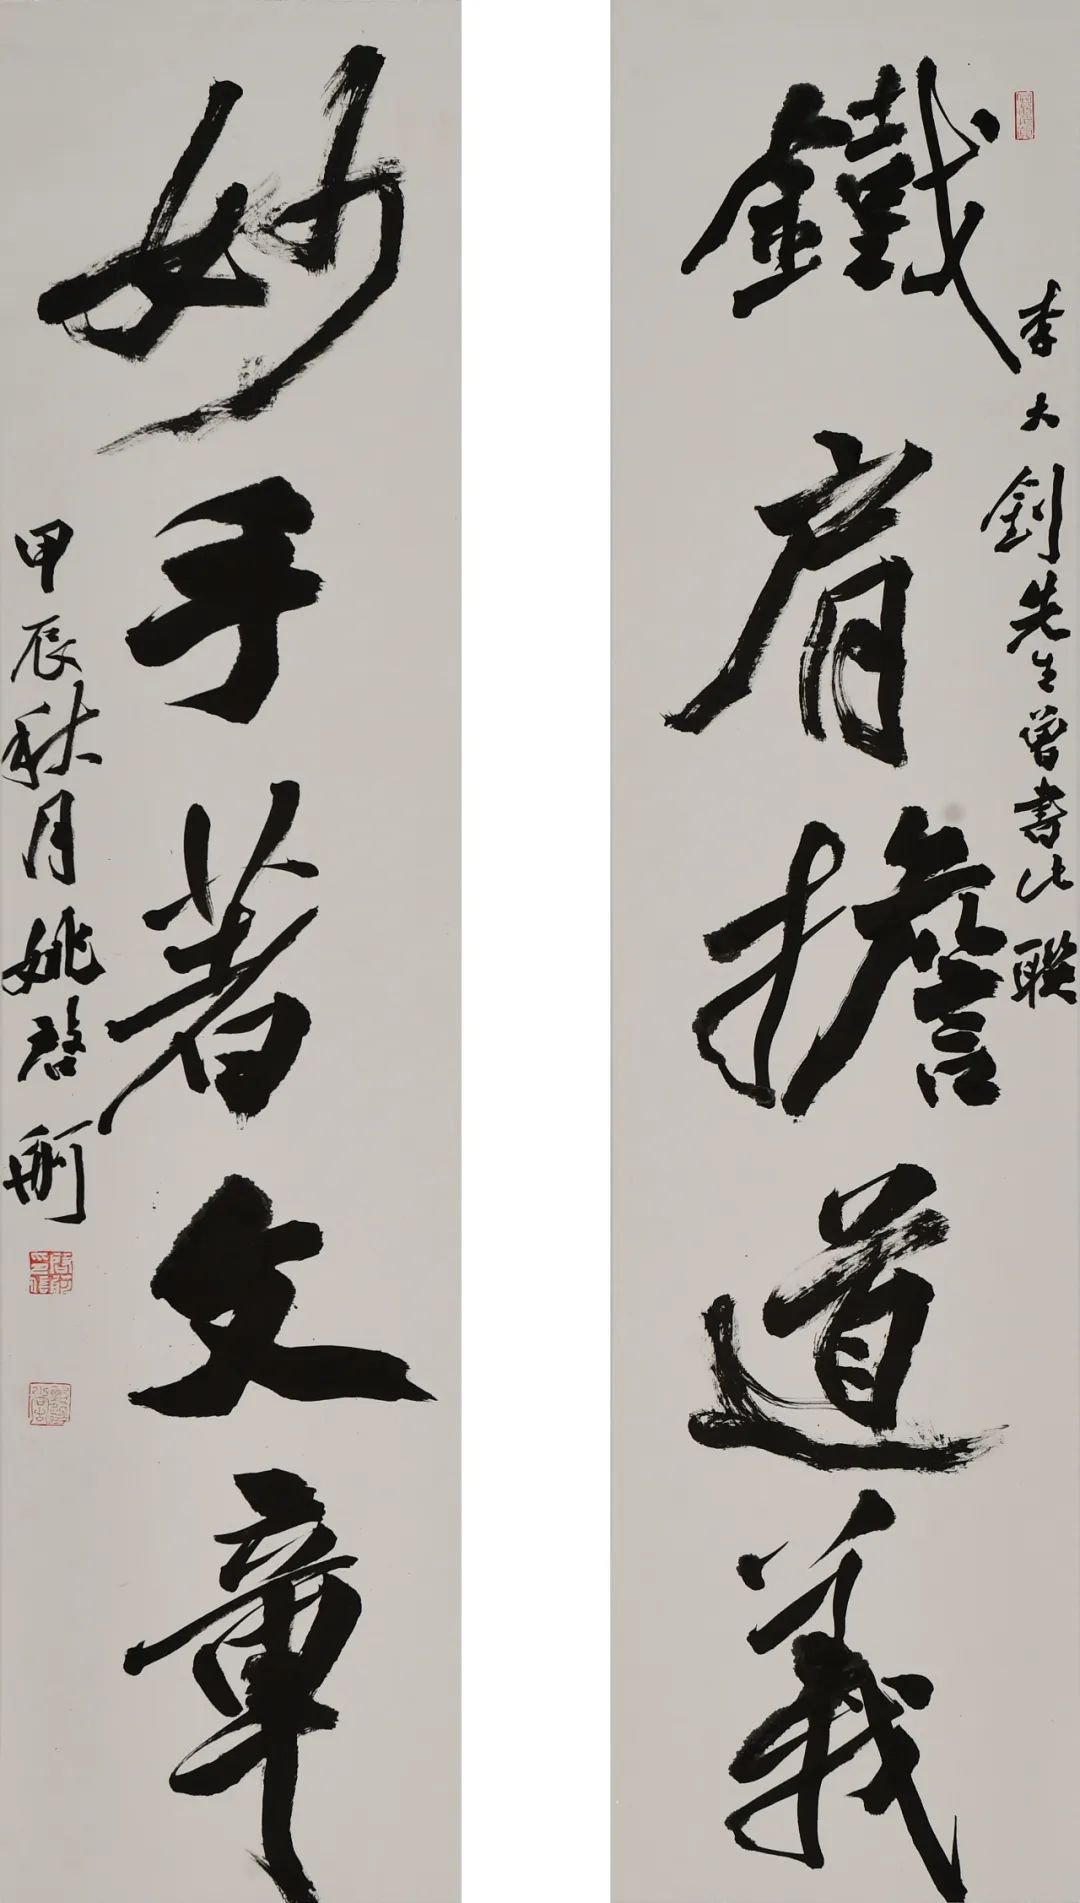 鐵肩擔道義
李大釗先生曾書此聯
妙手著文章
甲辰秋月姚啓